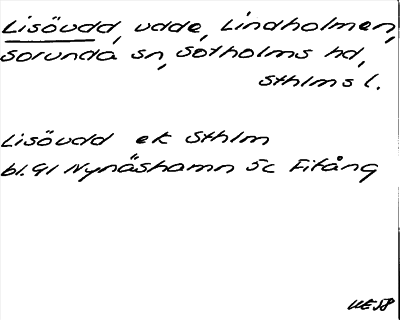 Lisöudd, udde, Lindholmen,
Sorunda sn, Sotholms hd,
Sthlms l.
Lisöudd ek Sthlm
bl. 91 Nynäshamn 5c Fifång
UE58